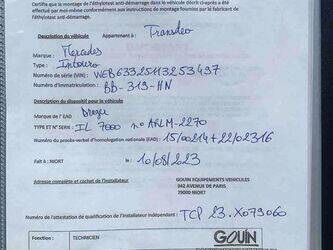 Certifie que le montage de l'éthylotest anti-démarrage dans le véhicule décrit ci-après a été
effectué par moi-même conformément aux instructions de montage fournies par le fabricant de
l'éthylotest anti-démarrage.
Description du véhicule Appartenant à : Transdev
Marque : Mercedes
Type : Intouro
Numéro de série (VIN) : WEB6332S113253497
Numéro d'immatriculation : BB-319-HN
Description du dispositif pour le véhicule
Marque de l'EAD Drager
TYPE ET N° SERIE : IL 7000 no ARLM-2270
Numéro du procès-verbal d'homologation nationale (EAD) : 15/00214+22/02316
Fait à : NIORT le : 10/08/23
Adresse complète et cachet de l'installateur
GOUIN EQUIPEMENTS VEHICULES
342 AVENUE DE PARIS
79000 NIORT
Numéro de l'attestation de qualification de l'installateur indépendant : TCP 23.X079060
Fonction : TECHNICIEN
GOUIN